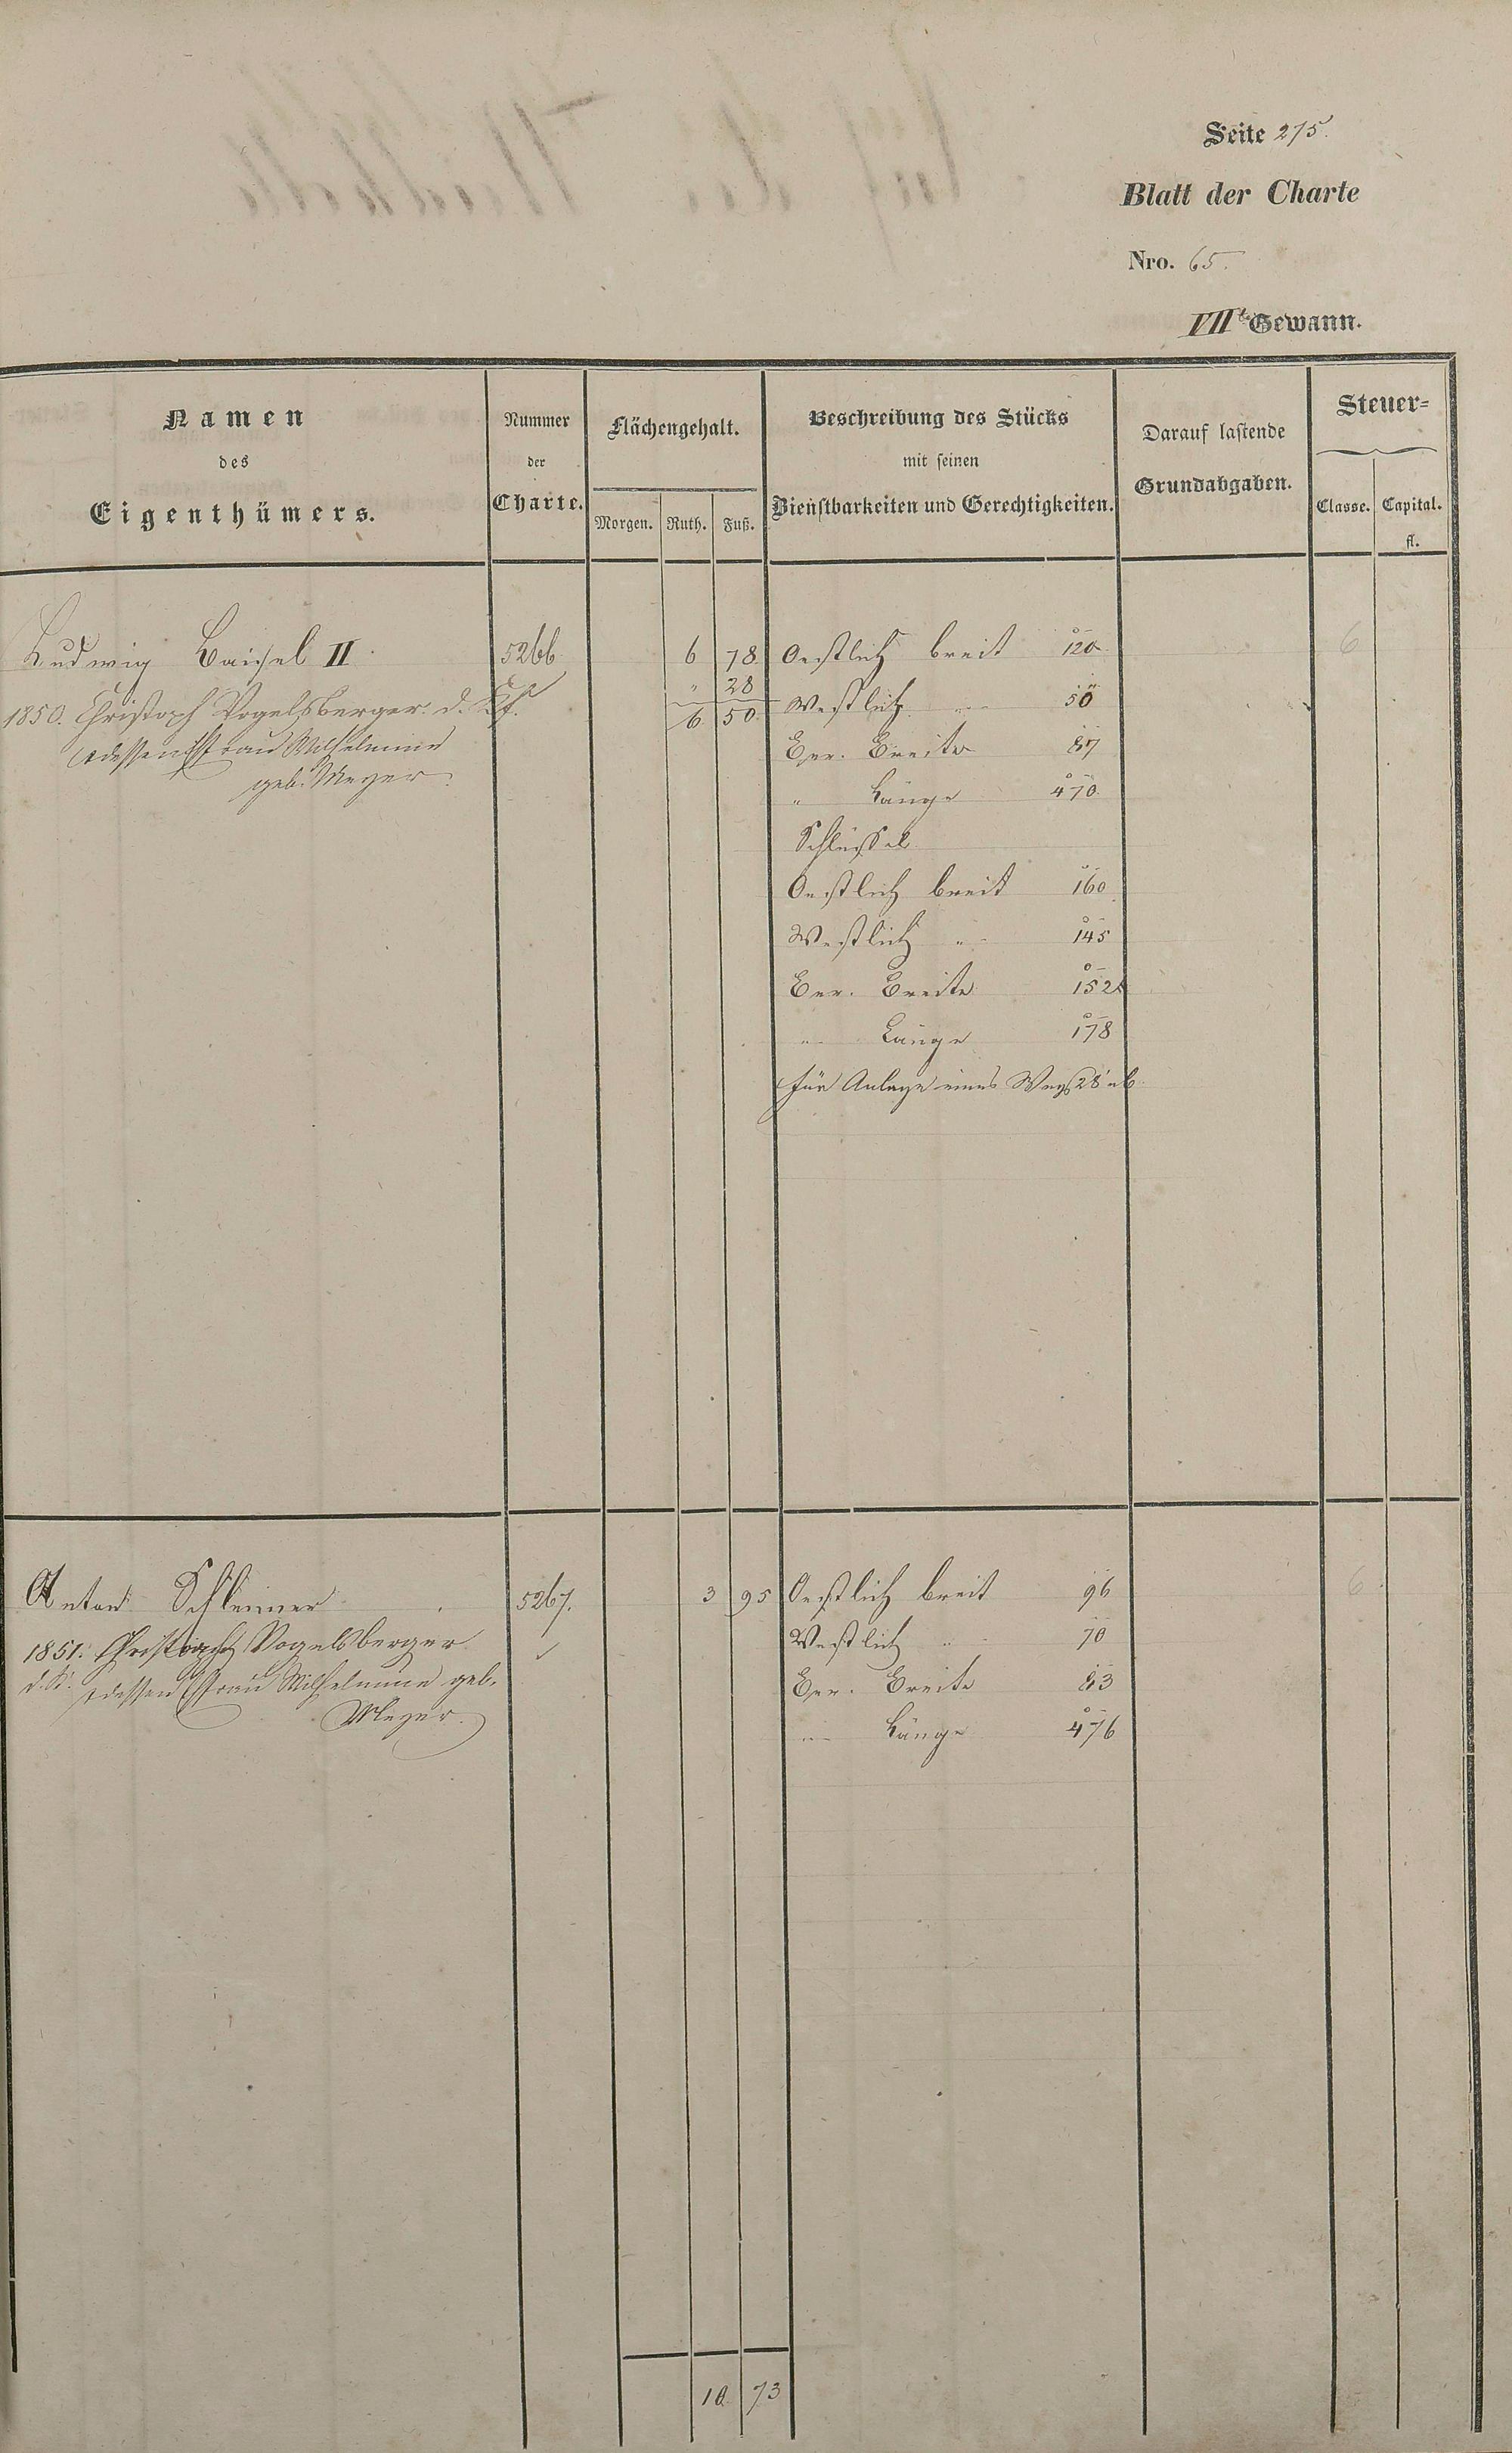 Seite 275.
Blatt der Charte
Nro. 65.
VIIte Gewann.
Namen
des
Eigenthümers.
Nummer
der
Charte.
Flächengehalt.
Morgen. Ruth. Fuß.
Beschreibung des Stücks
mit seinen
Dienstbarkeiten und Gerechtigkeiten.
Darauf lastende
Grundabgaben.
Steuer=
Classe. Capital.
fl.
Ludwig Baisel II 5266 6 78 Oestlich breit 120 6
" 28
1850. Christoph Vogelsberger d. 6 50 Westlich " 50
dessen Ehefrau Wilhelmine
geb. Meyer.
Ber. Breite 87
" Länge 470
Schlüssel
Oestlich breit 160
Westlich " 145
Ber. Breite 152
" Länge 178
für Anlage eines Wegs 28 ab
Anton Schleimer 5267. 3 95 Oestlich breit 96 6
1851. Christoph Vogelsberger Westlich " 70
dessen Ehefrau Wilhelmine geb. Ber. Breite 83
Meyer. " Länge 476
10 73